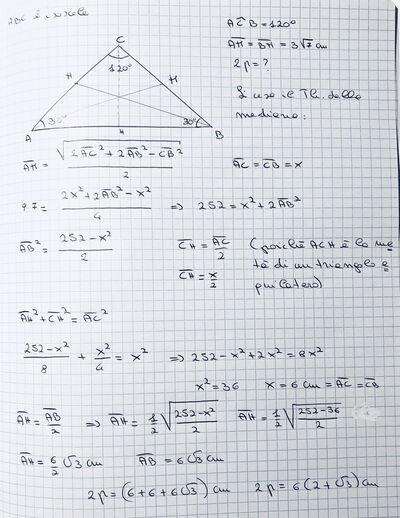 ABC è isoscele
AĈB = 120°
AM = BM = 3√7 cm
2p = ?
Si usa il Th. della
mediana:
C
120°
M
M
30°
30°
A
H
B
AM = √(2AC² + 2AB² - CB²) / 2
AC = CB = x
9·7 = (2x² + 2AB² - x²) / 4 ⇒ 252 = x² + 2AB²
AB² = (252 - x²) / 2
CH = AC / 2 (poichè ACH è la me
CH = x / 2
tà di un triangolo e
quilatero)
AH² + CH² = AC²
(252 - x²) / 8 + x² / 4 = x² ⇒ 252 - x² + 2x² = 8x²
x² = 36 x = 6 cm = AC = CB
AH = AB / 2 ⇒ AH = 1/2 √((252 - x²) / 2) AH = 1/2 √((252 - 36) / 2)
AH = 6/2 √3 cm AB = 6√3 cm
2p = (6 + 6 + 6√3) cm 2p = 6(2 + √3) cm